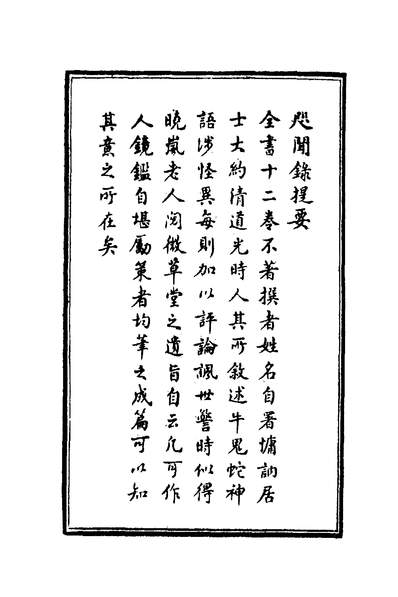 咫聞錄提要
全書十二卷不著撰者姓名自署慵訥居
士大約清道光時人其所敘述牛鬼蛇神
語涉怪異每則加以評論諷世警時似得
曉嵐老人閱微草堂之遺旨自云凡可作
人鏡鑑自堪勵策者均筆之成篇可以知
其意之所在矣